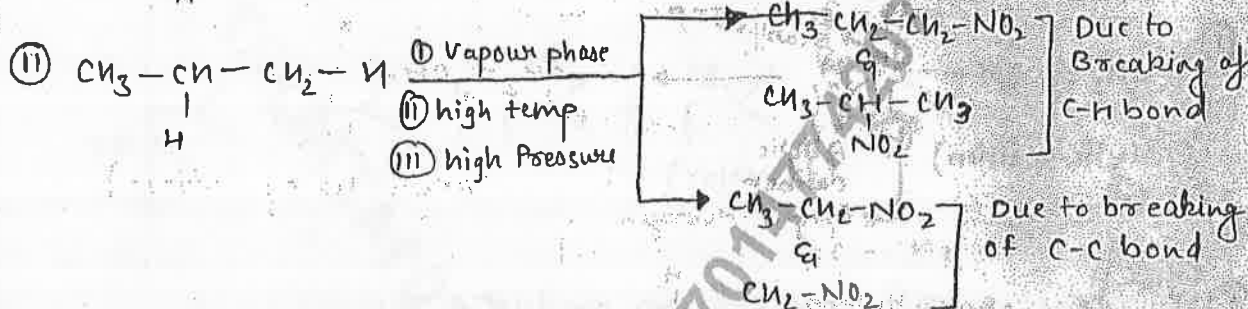 (II) CH3 – CH – CH2 – H
H
(I) Vapour phase
(II) high temp
(III) high Pressure
CH3 CH2–CH2–NO2
&
CH3–CH–CH3
NO2
Due to
Breaking of
C-H bond
CH3–CH2–NO2
&
CH2–NO2
Due to breaking
of C-C bond